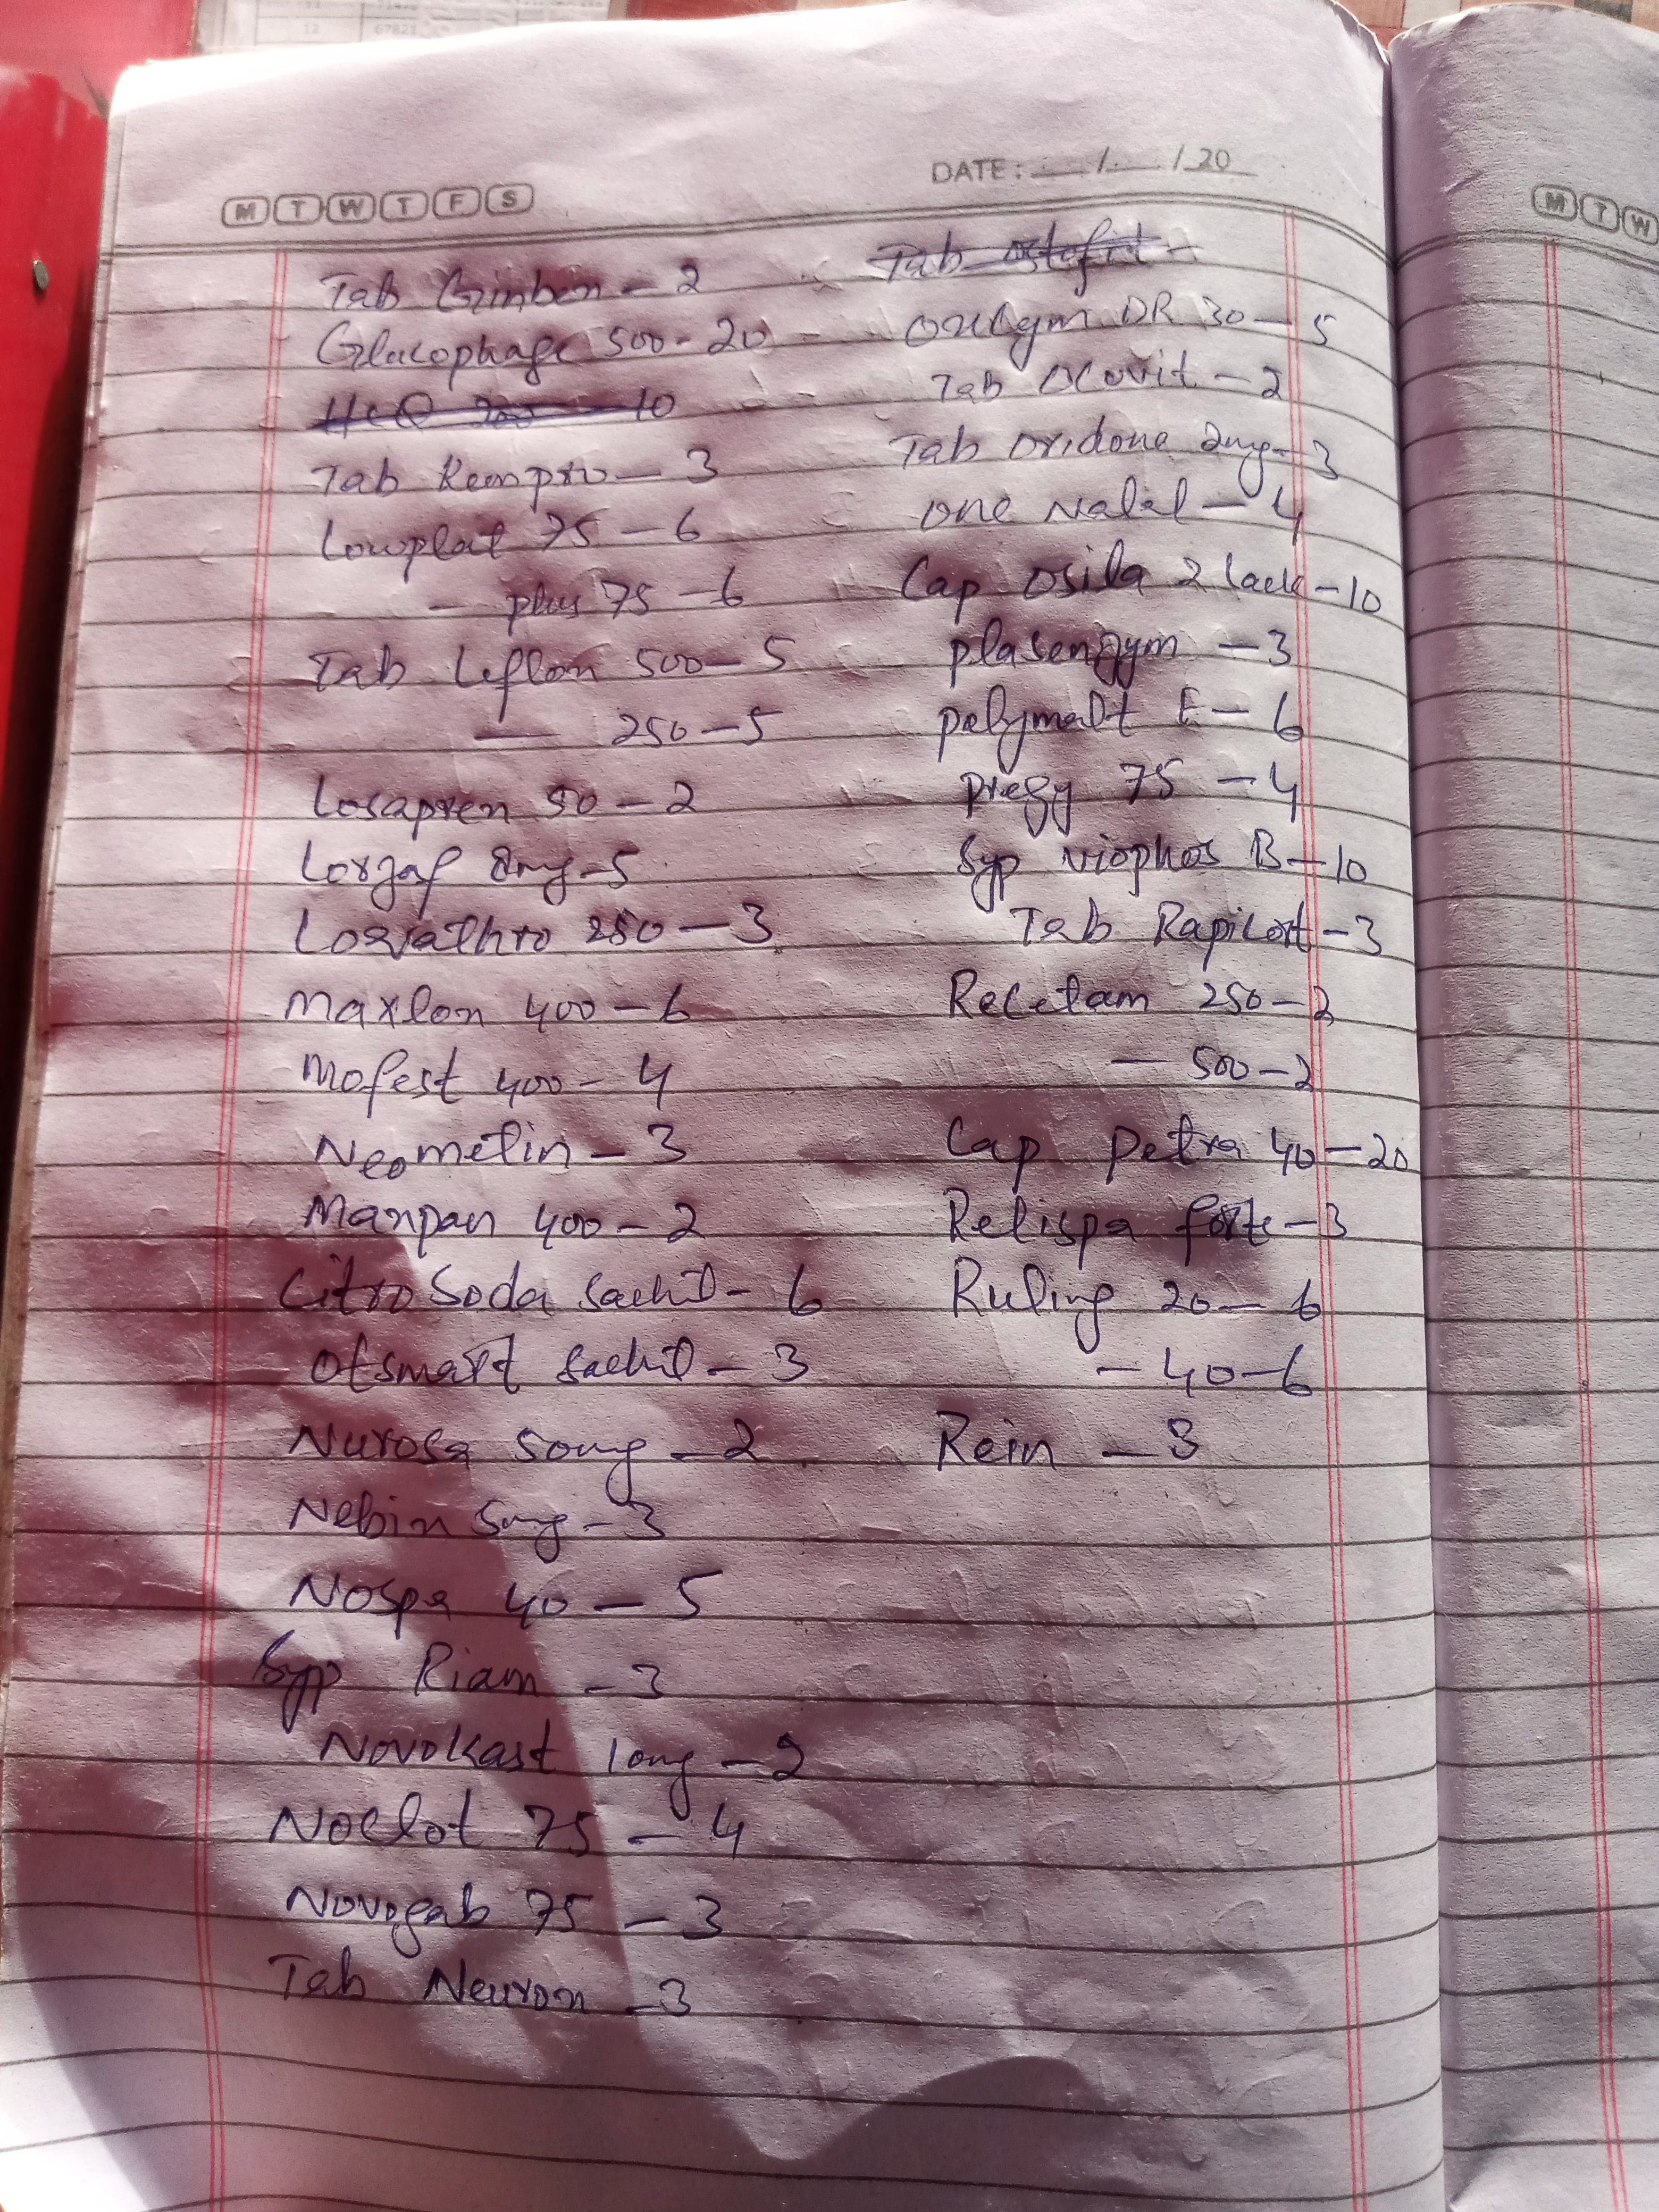 12 67821
M T W T F S
DATE: __/__/20
Tab Ginben - 2
Glucophage 500 - 20
HCQ 200 - 10
Tab Kempro - 3
Lowplat 75 - 6
— plus 75 - 6
Tab Leflon 500 - 5
— 250 - 5
Losapren 50 - 2
Lorzaf 8mg - 5
250 - 3
Maxlon 400 - 6
Mofest 400 - 4
Neometin - 3
Manpan 400 - 2
Citro Soda Sachit - 6
Otsmart Sachit - 3
Nurosa 50mg - 2
Nebin 5mg - 3
Nospa 40 - 5
Syp Riam - 3
Novokast 10mg - 2
Noclot 75 - 4
Novogab 75 - 3
Tab Neuron - 3
Tab ostofit -
DR 30 - 5
Tab Ocuvit - 2
Tab Oridone 2mg - 3
One Nalal - 4
Cap Osila 2 lack - 10
plasenzym - 3
polymalt F - 6
Pregy 75 - 4
Syp viophos B - 10
Tab Rapicort - 3
Recetam 250 - 2
— 500 - 2
Cap Petra 40 - 20
Relispa forte - 3
Ruling 20 - 6
- 40 - 6
Rein - 3
M T W